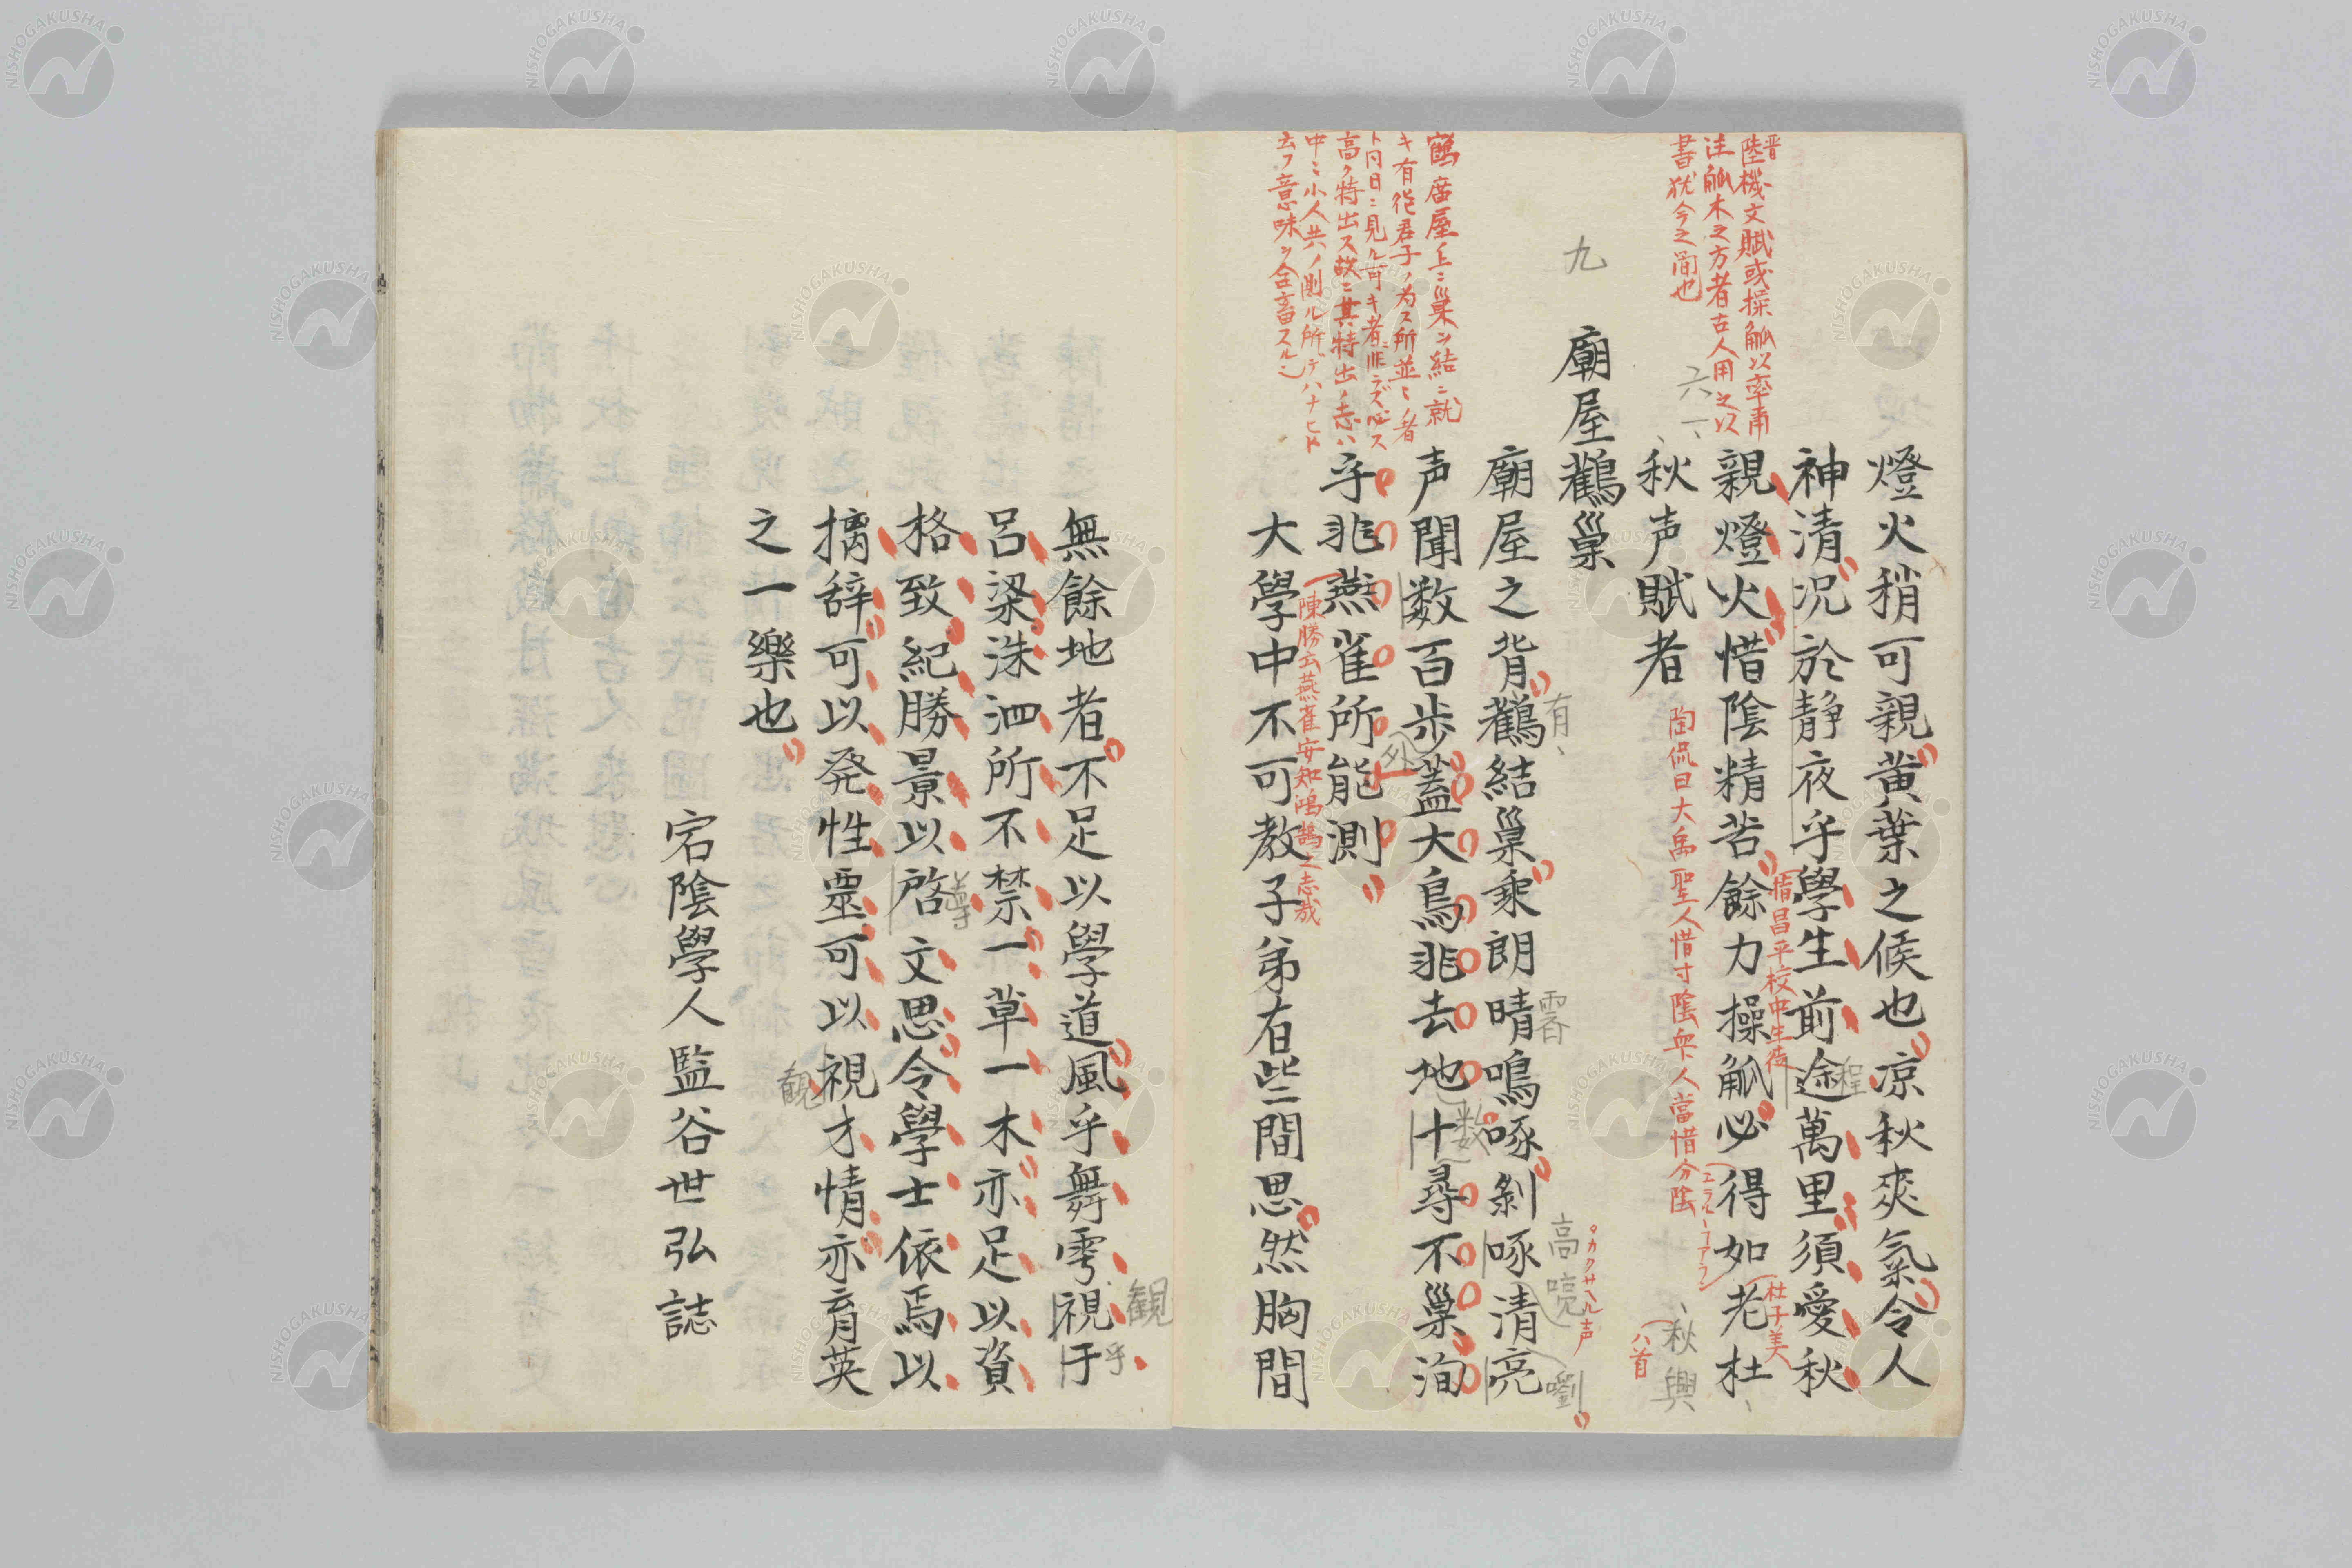 燈火稍可親黄葉之候也凉秋爽氣令人
神清况於静夜乎學生前途萬里須愛秋
程
惜昌平校中生徒
親燈火惜陰精苦餘力操觚必得如老杜
杜子美
秋声賦者
秋興
八首
陶侃曰大禹聖人惜寸陰衆人當惜分陰
晋
陸機文賦或操觚以率甫
注觚木之方者古人用之以
書犹今之簡也
九
廟屋鸛巢
廟屋之背鸛結巢乘朗晴鳴啄剝啄清亮
有
霽
高喨
タカクサヘル声
嚠
声聞数百歩蓋大鳥非去地十尋不巢洵
外
数
乎非燕雀所能測
陳勝云燕雀安知鴻鵠之志哉
大學中不可教子弟有些間思然胸間
鸛庿屋上ニ巢ヲ結ニ就
キ有徳君子ノ為ス所並々ノ者
ト同日ニ見ル可キ者ニ非ラズ必ス
高ク特出ス故ニ其特出ノ志ハ
中ミ小人共ノ測ル所デハナヒト
云フ意味ヲ含畜スル
無餘地者不足以學道風乎舞雩視于
観
乎
呂梁洙泗所不禁一草一木亦足以資
格致紀勝景以啓文思令學士依焉以
導
摛辞可以発性靈可以視才情亦育英
観
之一樂也
宕陰學人監谷世弘誌
NISHOGAKUSHA